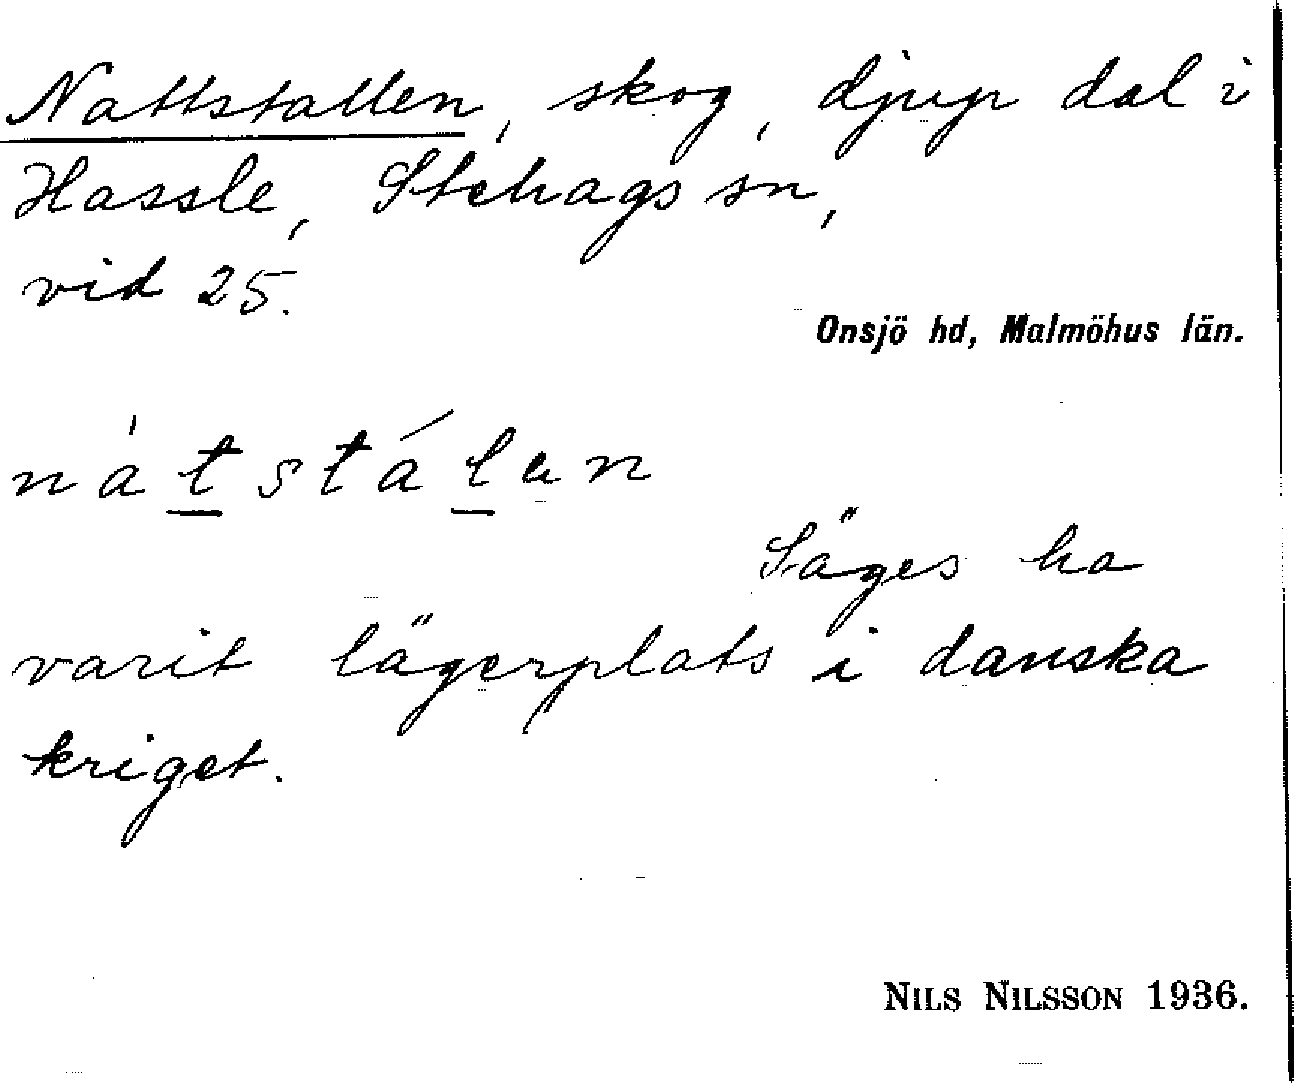 Nattstallen, skog, djup dal i
Hassle, Stehags sn,
vid 25.
Onsjö hd, Malmöhus län.
nàtstálan
Säges ha
varit lägerplats i danska
kriget.
NILS NILSSON 1936.